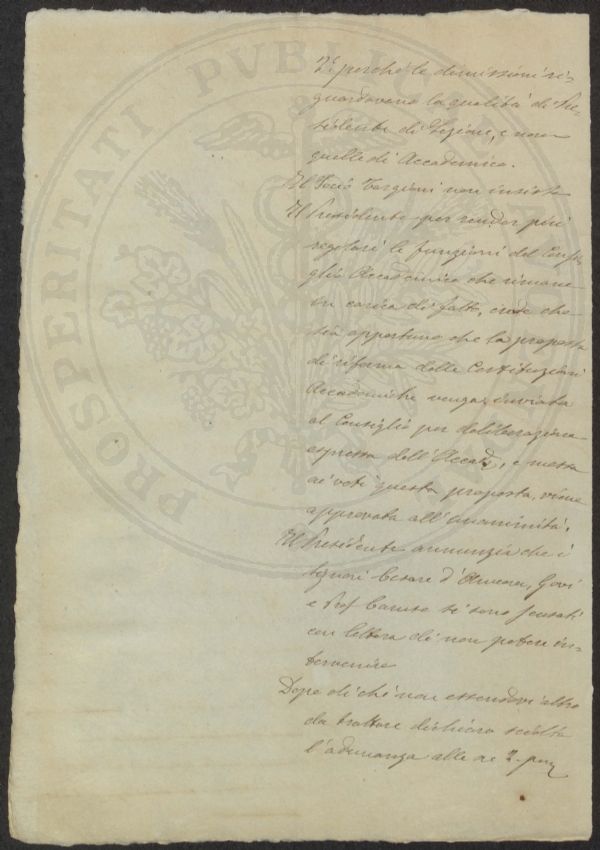 PROSPERITATI PUBLICAE AUGENDAE
Zi perchè le dimissioni ri-
guardavano la qualità di Pre-
sidente di Sezione, e non
quelle di Accademico.
Il Socio Targioni non insiste
Il Presidente per render più
regolari le funzioni del Consi-
glio Accademico che rimane
in carica di fatto, crede che
sia opportuno che la proposta
di riforma delle Costituzioni
Accademiche venga inviata
al Consiglio per deliberazione
espressa dell'Accad., e messa
ai voti questa proposta, viene
approvata all'unanimità.
Il Presidente annunzia che i
Signori Cesare d'Ancona, Govi
e Prof Caruso si sono scusati
con lettera di non potere in-
tervenire
Dopo di che non essendovi altro
da trattare dichiara sciolta
l'adunanza alle ore 2. pom